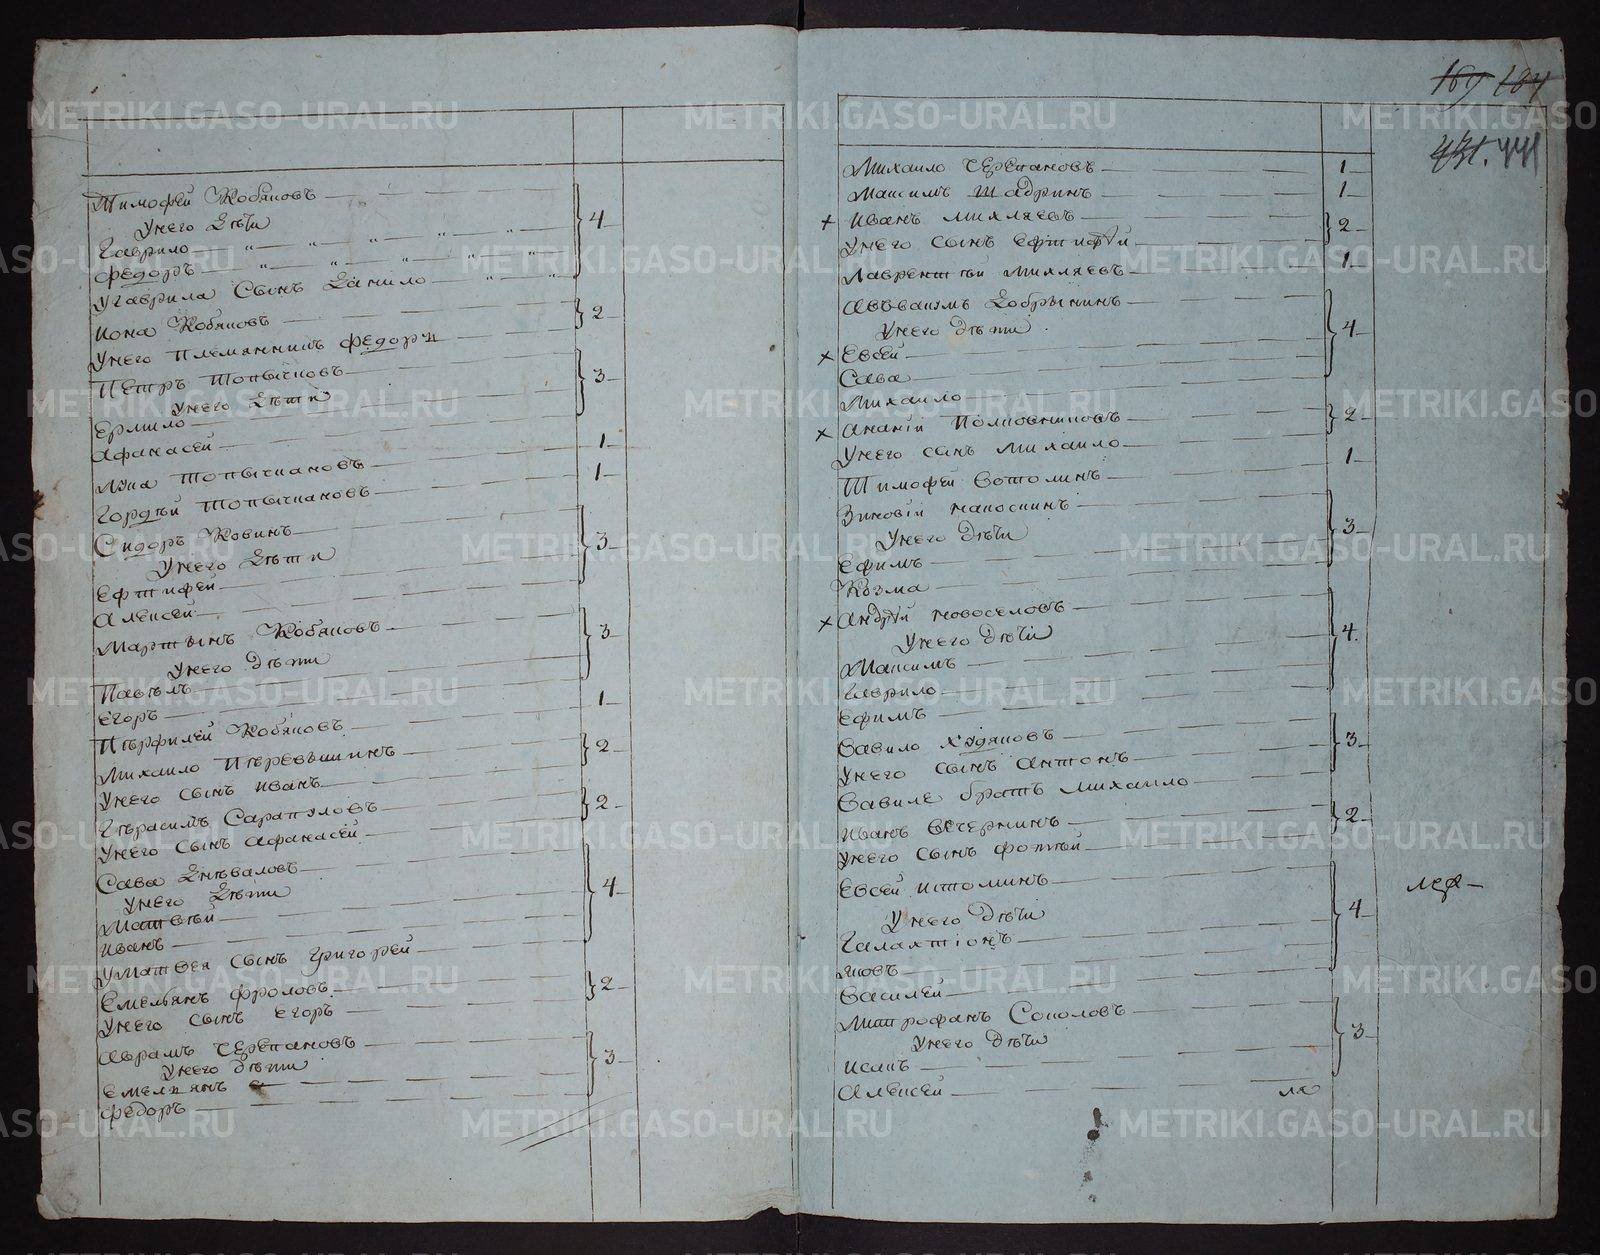 Тимофей Кобяковъ
Унего Дѣти
Гаврило
Федоръ
Угаврила Сынъ Данило
4
Иона Кобяковъ
Унего племянникъ Федоръ
2
Петръ Топычковъ
Унего Дѣти
Ермило
Афанасей
3
Лука Топычкановъ 1
Гордѣй Топычкановъ 1
Сидоръ Ковинъ
Унего Дѣти
Ефтифей
Алексей
3
Мартынъ Кобяковъ
Унего дѣти
Павелъ
Егоръ
3
Пѣрфилей Кобяковъ 1
Михаило Пѣревышинъ
Унего сынъ Иванъ
2
Гѣрасимъ Сарапуловъ
Унего Сынъ Афанасей
2
Сава Дѣваловъ
Унего Дѣти
Матвѣй
Иванъ
Уматвея сынъ Григорей
4
Емельянъ Фроловъ
Унего сынъ Егоръ
2
Аврамъ Черепановъ
Унего дѣти
Емелиянъ
Федоръ
3
169 184
431. 441
Михаило Черепановъ 1
Максимъ Шадринъ 1
Иванъ Михляевъ
Унего сынъ Ефтифѣй
2
Лаврентѣй Михляевъ 1
Аввакумъ Добрынинъ
Унего дѣти
Евсей
Сава
Михаило
4
Ананiй Полковниковъ
Унего сынъ Михаило
2
Тимофей Вотолинъ 1
Зиновiй Накоскинъ
Унего Дѣти
Ефимъ
Козма
3
Андрѣй Новоселовъ
Унего дѣтi
Максимъ
Гаврило
Ефимъ
4
Вавило Худяковъ
Унего сынъ Антонъ
Вавиле братъ Михаило
3
Иванъ Вечернинъ
Унего сынъ Фотѣй
2
Евсей Истоминъ
Унего Дѣти
Галахтiонъ
Яковъ
Василей
4
Митрофанъ Соколовъ
Унего Дѣти
Исакъ
Алексей
3